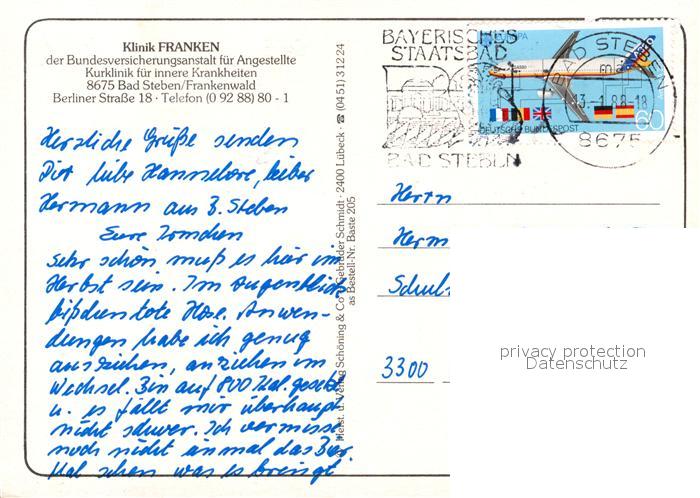 Klinik FRANKEN
der Bundesversicherungsanstalt für Angestellte
Kurklinik für innere Krankheiten
8675 Bad Steben/Frankenwald
Berliner Straße 18 · Telefon (0 92 88) 80 - 1
Herzliche Grüße senden
Dir liebe Hannelore, lieber
Hermann aus B. Steben
Eure
Sehr schön muß es hier im
Herbst sein. Im Augenblick
tote Hose. Anwen-
dungen habe ich genug
ausziehen, anziehen im
Wechsel. Bin auf 800 Kal. gesetzt
u. es fällt mir überhaupt
nicht schwer. Ich vermisse
noch nicht einmal das Bier.
Mal sehen was es bringt
Herst. u. Verlag Schöning & Co + Gebrüder Schmidt · 2400 Lübeck · ☎ (04 51) 3 12 24
as Bestell-Nr. Baste 205
BAYERISCHES
STAATSBAD
BAD STEBEN
DEUTSCHE BUNDESPOST
60
BAD STEBEN
8675
Herrn
Herm
Schul
3300
privacy protection
Datenschutz